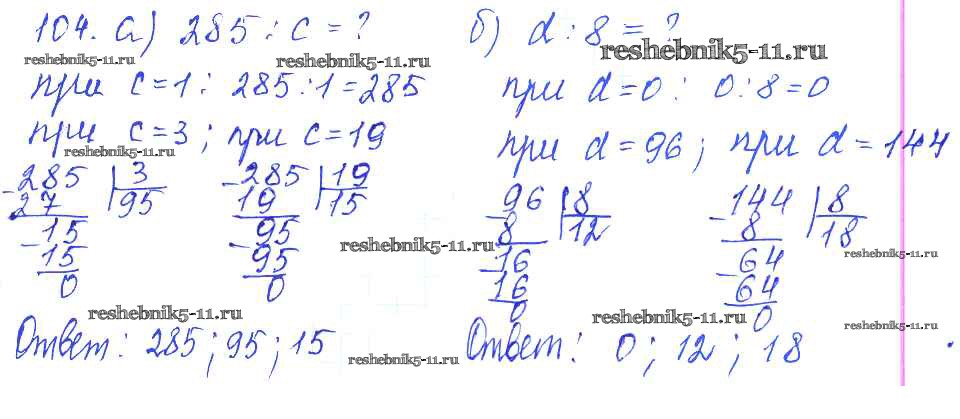 104. а) 285 : c = ?
при c = 1 : 285 : 1 = 285
при c = 3 ; при c = 19
- 285 | 3
27 | 95
- 15
15
0
- 285 | 19
19 | 15
- 95
95
0
Ответ: 285 ; 95 ; 15
б) d : 8 = ?
при d = 0 : 0 : 8 = 0
при d = 96 ; при d = 144
- 96 | 8
8 | 12
- 16
16
0
- 144 | 8
8 | 18
- 64
64
0
Ответ: 0 ; 12 ; 18 .
reshebnik5-11.ru
reshebnik5-11.ru
reshebnik5-11.ru
reshebnik5-11.ru
reshebnik5-11.ru
reshebnik5-11.ru
reshebnik5-11.ru
reshebnik5-11.ru
reshebnik5-11.ru
reshebnik5-11.ru